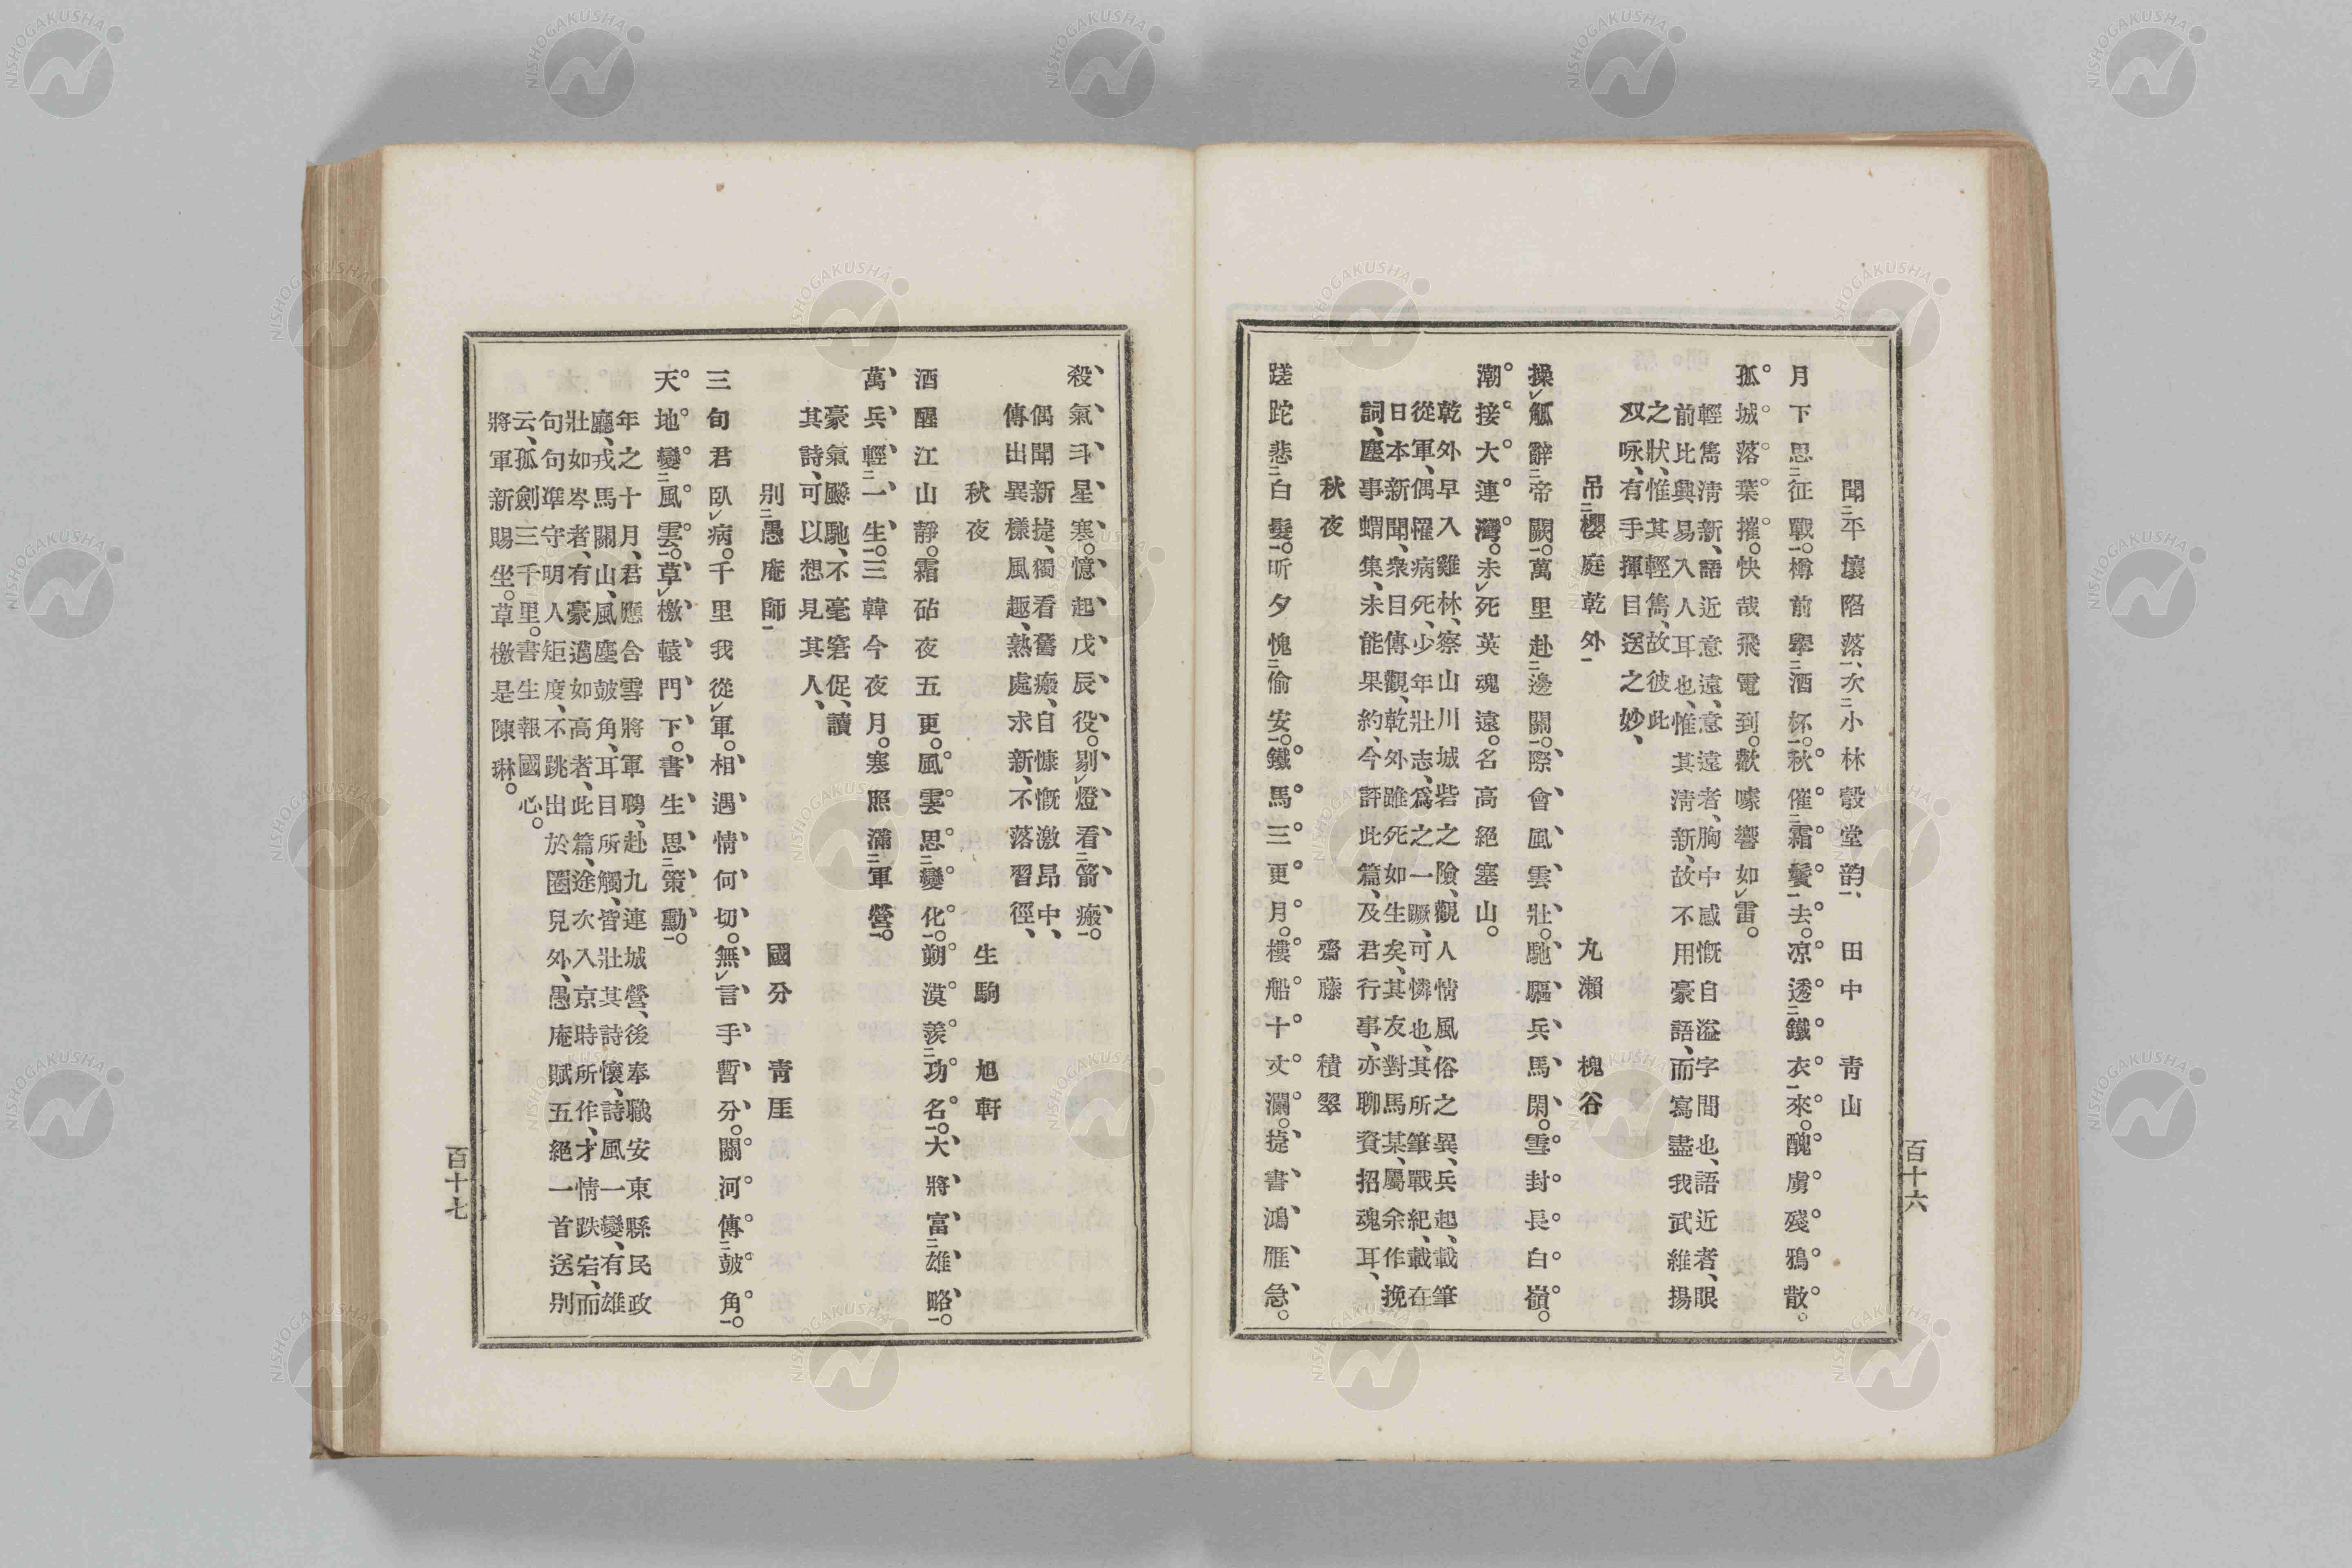 聞二平壤陷落一、次二小林彀堂韵一、　田中　青山
月下思二征戰一。樽前擧二酒杯一。秋催二霜鬢一去。凉透二鐵衣一來。醜虜殘鴉散。
孤城落葉摧。快哉飛電到。歡噱響如レ雷。
輕雋淸新、語近意遠、意遠者、胸中感慨自溢字間也、語近者、眼
前比興易入人耳也、惟其淸新、故不用豪語、而寫盡我武維揚
之狀、惟其輕雋、故彼此
双咏、有手揮目送之妙、
吊二櫻庭乾外一　丸瀨　槐谷
操レ觚辭二帝闕一。萬里赴二邊關一。際會風雲壯。馳驅兵馬閑。雪封長白嶺。
潮接大連灣。未レ死英魂遠。名高絕塞山。
乾外早入雞林、察山川城砦之險、觀人情風俗之異、兵起、載筆
從軍、偶罹病死、少年壯志、爲之一蹶、可憐也、其所筆戰紀、載在
日本新聞、衆目傳觀、乾外雖死如生矣、其友對馬某、屬余作挽
詞、塵事蝟集、未能果約、今評此篇、及君行事、亦聊資招魂耳、
秋夜　齋藤　積翠
蹉跎悲二白髮一。昕夕愧二偷安一。鐵馬三更月。樓船十丈瀾。捷書鴻雁急。
百十六
殺氣斗星寒。憶起戊辰役。剔レ燈看二箭瘢一。
偶聞新捷、獨看舊瘢、自慷慨激昂中、
傳出異樣風趣、熟處求新、不落習徑、
秋夜　生駒　旭軒
酒醒江山靜。霜砧夜五更。風雲思二變化一。朔漠羨二功名一。大將富二雄略一。
萬兵輕二一生一。三韓今夜月。寒照滿二軍營一。
豪氣颷馳、不毫窘促、讀
其詩、可以想見其人、
別二愚庵師一　國分　青厓
三旬君臥レ病。千里我從レ軍。相遇情何切。無レ言手暫分。關河傳二鼓角一。
天地變二風雲一。草レ檄轅門下。書生思二策勳一。
年之十月、君應含雪將軍聘、赴九連城營、後奉職安東縣民政
廳、戎馬關山、風塵鼓角、耳目所觸、皆壯其詩懷、詩風一變、有雄
壯如岑者、有豪邁如高者、此篇、途次入京時所作、才情跌宕、而
句句準守明人矩度、不跳出於圈兒外、愚庵賦五絕一首送別
云、孤劍三千里。書生報國心。
將軍新賜坐。草檄是陳琳。
百十七
NISHOGAKUSHA